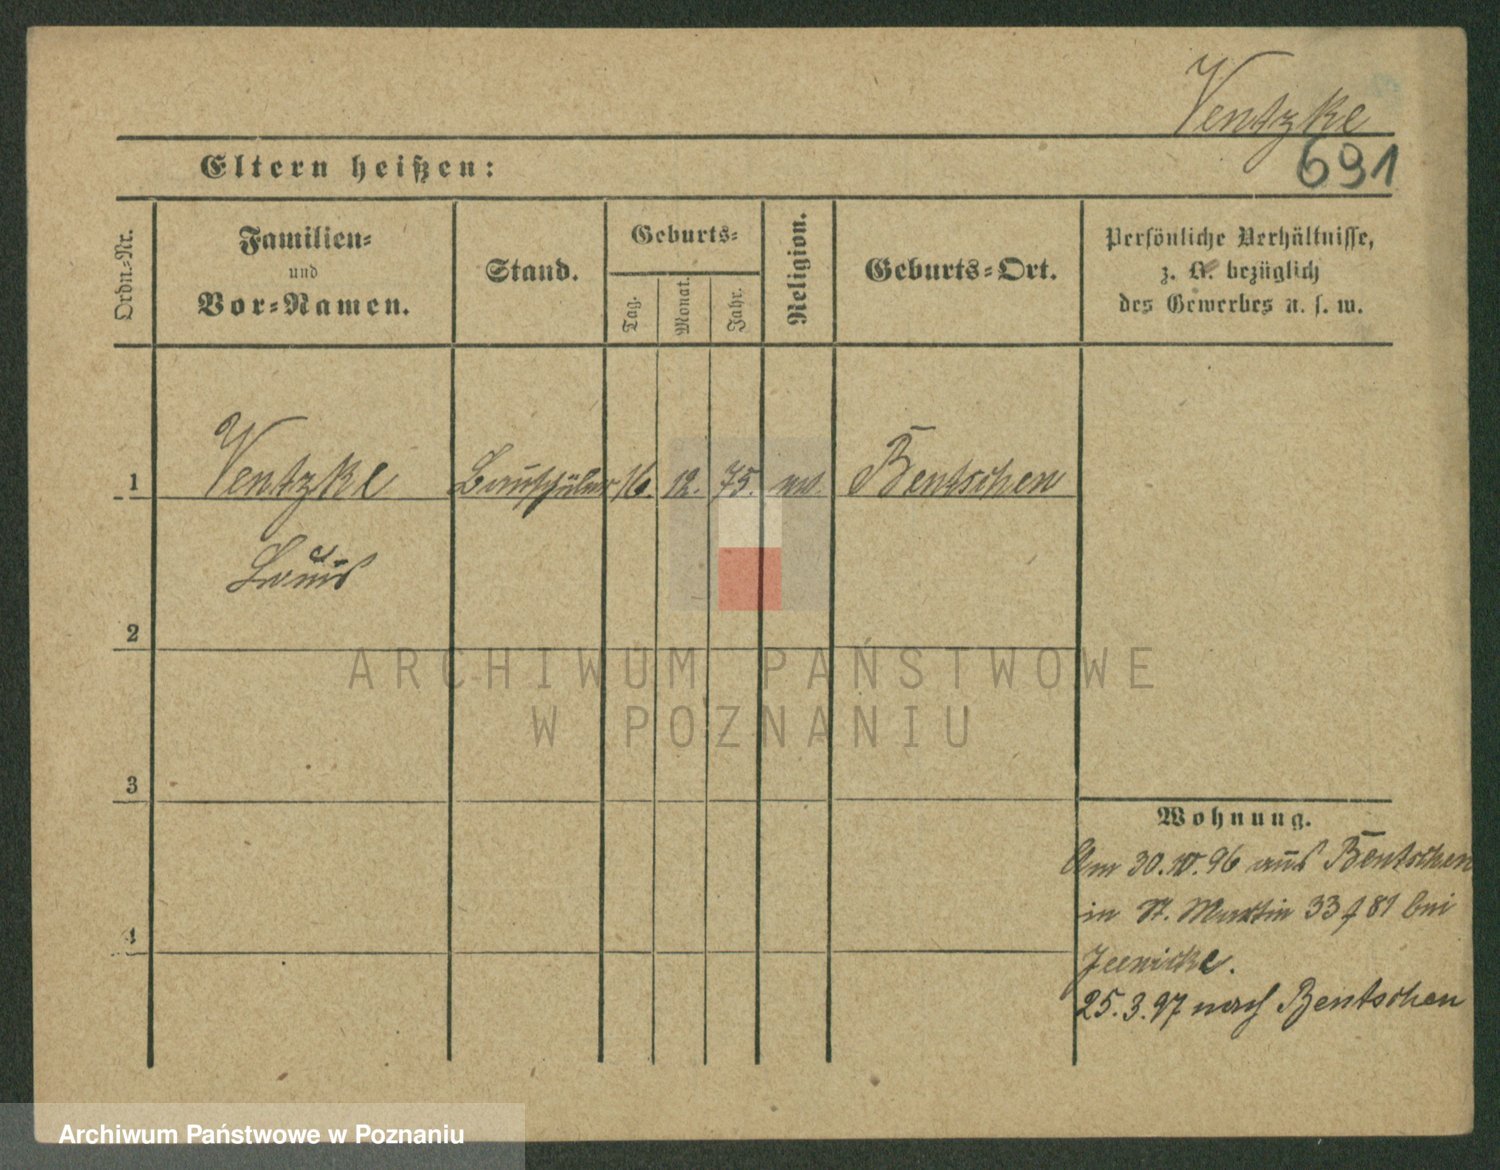 Ventzke
691
Eltern heißen:
Ordn.-Nr.
Familien-
und
Vor-Namen.
Stand.
Geburts-
Tag.
Monat.
Jahr.
Religion.
Geburts-Ort.
Persönliche Verhältnisse,
z. B. bezüglich
des Gewerbes u. s. w.
1 Ventzke Bauschüler 16. 12. 75. ev. Bentschen
Louis
2
3
4
Wohnung.
Am 30. 10. 96 aus Bentschen
in St. Martin 33 81 bei
25. 3. 97 nach Bentschen
ARCHIWUM PAŃSTWOWE
W POZNANIU
Archiwum Państwowe w Poznaniu